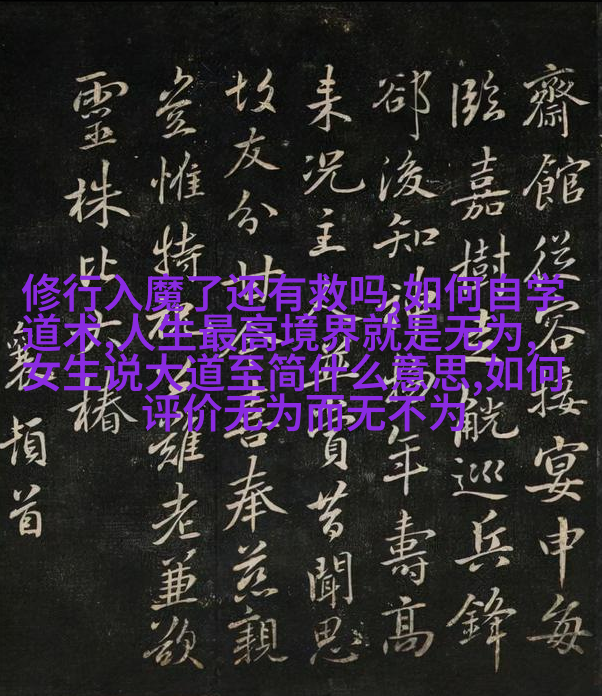 修行入魔了还有救吗,如何自学
道术,人生最高境界就是无为,
女生说大道至简什么意思,如何
评价无为而无不为
齋館從容接宴申每
臨嘉樹走觥巡兵鋒
郤後知物年壽高
来況主人賢昔聞思
故友分甘言奉慈親
豈惟特雖老兼欲
靈株比大椿
襄頓首